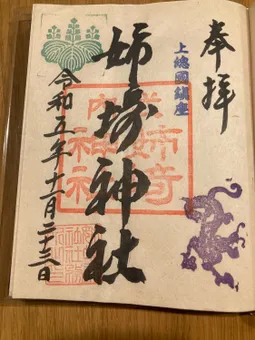 奉拝
上總國鎮座
姉埼神社
令和五年十一月二十三日